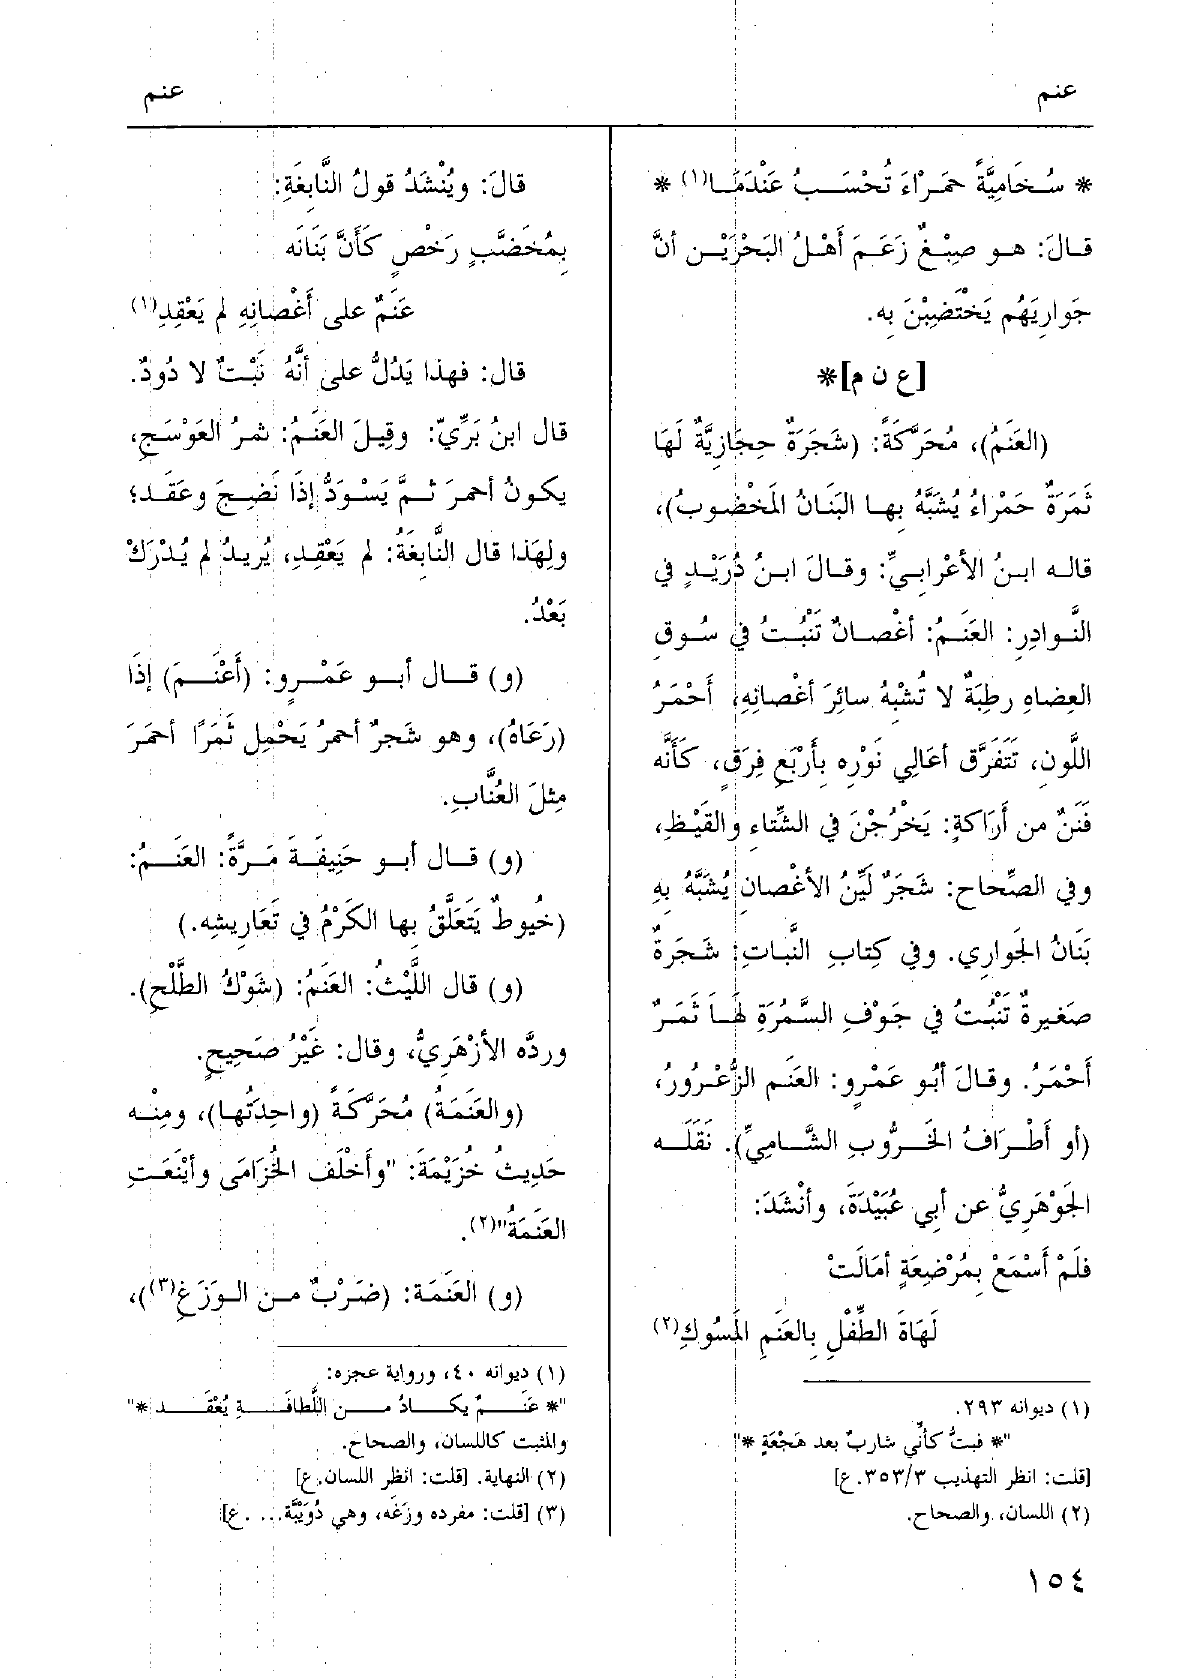 عنم
عنم
* سُخَامِيَّةً حَمْرَاءَ تُحْسَبُ عَنْدَمَا(١) *
قالَ: هو صِبْغٌ زَعَمَ أَهْلُ البَحْرَيْن أنَّ
جَوارِيَهُم يَخْتَضِبْنَ بِه.
[ع ن م]*
(العَنَمُ)، مُحَرَّكَةً: (شَجَرَةٌ حِجَازِيَّةٌ لَهَا
ثَمَرَةٌ حَمْرَاءُ يُشَبَّهُ بِها البَنَانُ المَخْضُوبُ)،
قاله ابنُ الأعْرابيِّ: وقالَ ابنُ دُرَيْدٍ في
النَّوادِرِ: العَنَمُ: أغْصانٌ تَنْبُتُ في سُوقِ
العِضاهِ رطِبَةٌ لا تُشْبِهُ سائِرَ أغْصانِهِ، أَحْمَرُ
اللَّونِ، تَتَفَرَّق أعَالِي نَوْرِه بِأَرْبَعِ فِرَقٍ، كَأَنَّه
فَنَنٌ من أَرَاكَةٍ: يَخْرُجْنَ في الشِّتاءِ والقَيْظِ،
وفي الصِّحاحِ: شَجَرٌ لَيِّنُ الأغْصان يُشَبَّهُ بِهِ
بَنَانُ الجَوارِي. وفي كِتابِ النَّباتِ: شَجَرَةٌ
صَغيرةٌ تَنْبُتُ في جَوْفِ السَّمُرَةِ لَهَا ثَمَرٌ
أَحْمَرُ. وقالَ أبُو عَمْرٍو: العَنَم الزُّعْرُورُ،
(أو أَطْرَافُ الخَرُّوبِ الشَّامِيِّ). نَقَلَه
الجَوْهَرِيُّ عن أبي عُبَيْدَةَ، وأنْشَدَ:
فلَمْ أَسْمَعْ بِمُرْضِعَةٍ أمَالَتْ
لَهَاةَ الطِّفْلِ بِالعَنَمِ المَسُوكِ(٢)
(١) ديوانه ٢٩٣.
"* فبتُّ كأنِّي شاربٌ بعد هَجْعَةٍ *"
[قلت: انظر التهذيب ٣/٣٥٣.ع]
(٢) اللسان، والصحاح.
قالَ: ويُنْشَدُ قولُ النَّابِغَةِ:
بِمُخَضَّبٍ رَخْصٍ كَأَنَّ بَنَانَه
عَنَمٌ على أَغْصانِهِ لم يَعْقِدِ(١)
قال: فهذا يَدُلُّ على أنَّهُ نَبْتٌ لا دُودٌ.
قال ابنُ بَرِّيّ: وقِيلَ العَنَمُ: ثمرُ العَوْسَجِ،
يكونُ أحمرَ ثمَّ يَسْوَدُّ إذَا نَضِجَ وعَقَد؛
ولِهَذا قال النَّابِغَةُ: لم يَعْقِدِ، يُريدُ لم يُدْرَكْ
بَعْدُ.
(و) قال أبو عَمْرٍو: (أَعْنَمَ) إذَا
(رَعَاهُ)، وهو شَجرٌ أحمرُ يَحْمِل ثَمَرًا أحمَرَ
مِثلَ العُنَّابِ.
(و) قال أبو حَنِيفَةَ مَرَّةً: العَنَمُ:
(خُيوطٌ يَتَعَلَّقُ بِها الكَرْمُ في تَعَارِيشِه.)
(و) قال اللَّيْثُ: العَنَمُ: (شَوْكُ الطَّلْحِ).
وردَّه الأزْهَرِيُّ، وقال: غَيْرُ صَحِيحٍ.
(والعَنَمَةُ) مُحَرَّكَةً (واحِدَتُها)، ومِنْه
حَدِيثُ خُزَيْمَةَ: "وأَخْلَفَ الخُزَامَى وأيْنَعَتِ
العَنَمَةُ"(٢).
(و) العَنَمَة: (ضَرْبٌ من الوَزَغِ(٣))،
(١) ديوانه ٤٠، ورواية عجزه:
"* عَنَمٌ يكادُ من اللَّطافَةِ يُعْقَد *"
والمثبت كاللسان، والصحاح.
(٢) النهاية. [قلت: انظر اللسان.ع]
(٣) [قلت: مفرده وزَغَه، وهي دُوَيْبَّة... .ع]
١٥٤